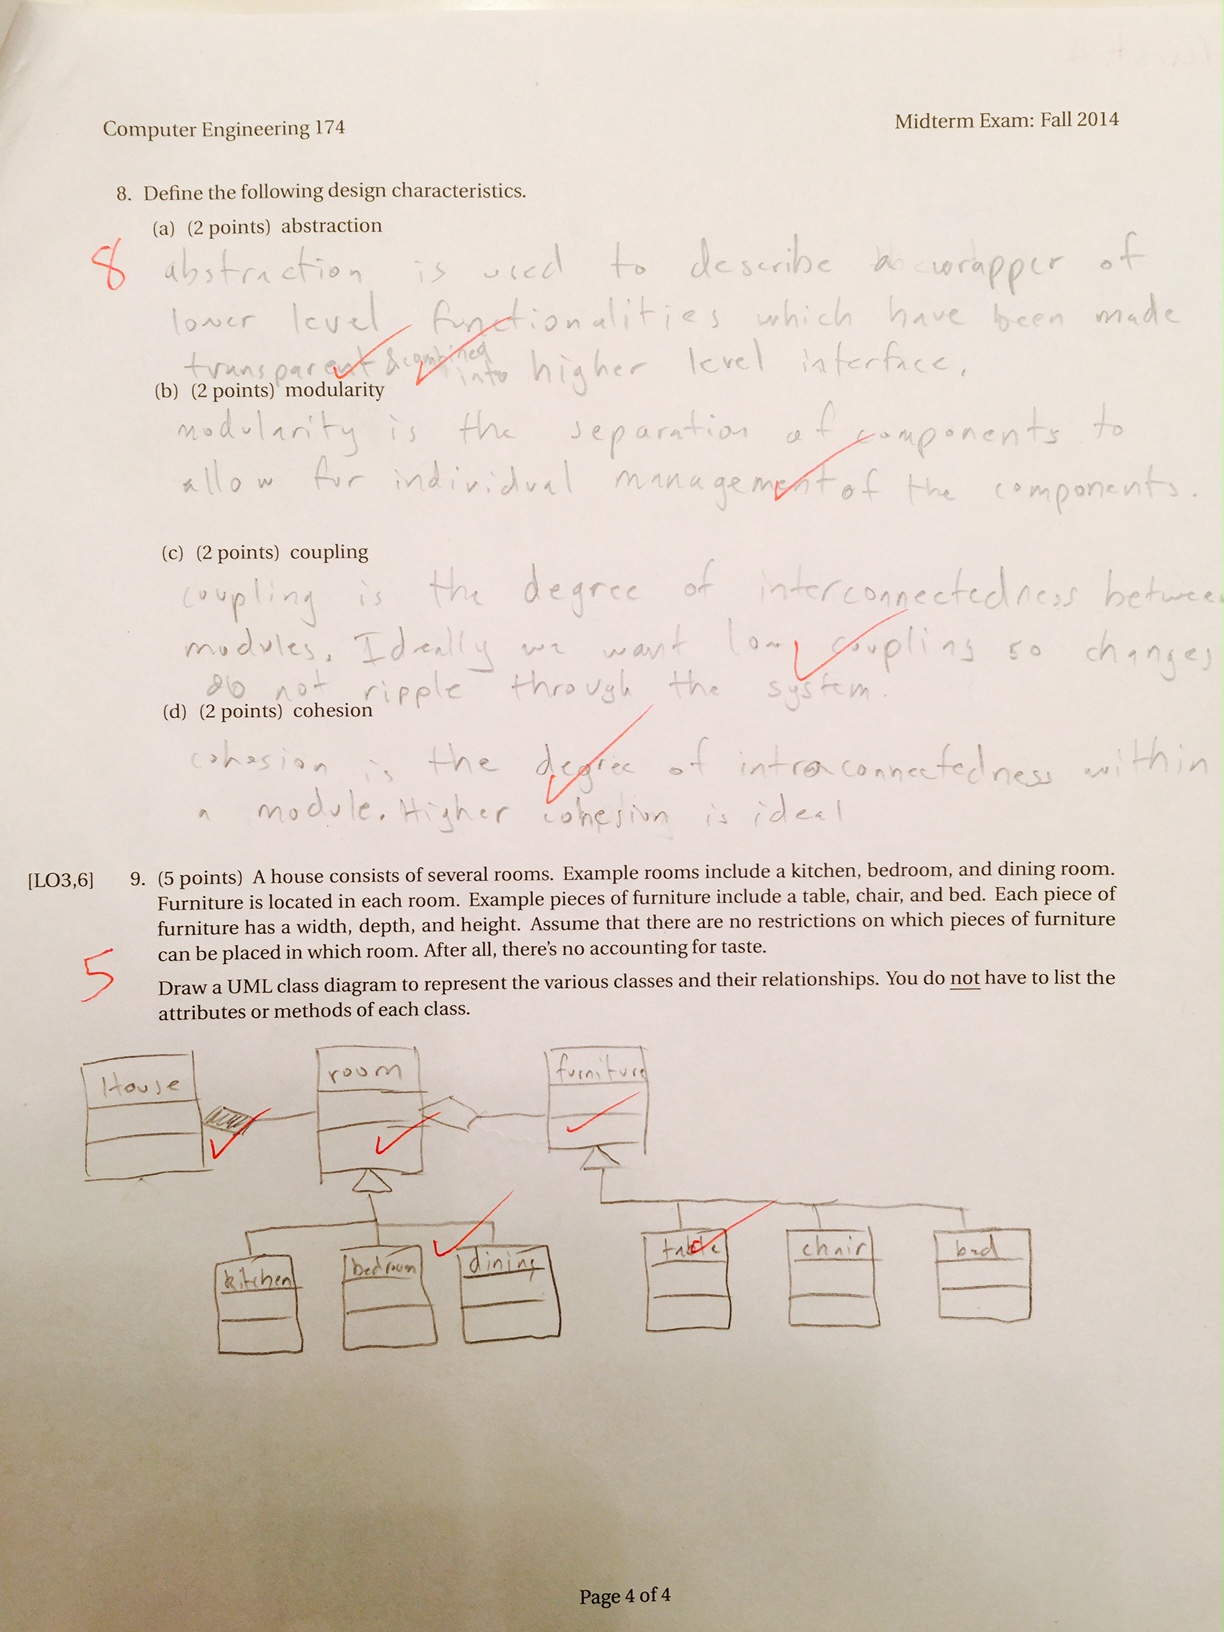 Computer Engineering 174
Midterm Exam: Fall 2014
8. Define the following design characteristics.
(a) (2 points) abstraction
8
abstraction is used to describe a wrapper of
lower level functionalities which have been made
transparent & combined into higher level interface.
(b) (2 points) modularity
modularity is the separation of components to
allow for individual management of the components.
(c) (2 points) coupling
coupling is the degree of interconnectedness between
modules. Ideally we want low coupling so changes
do not ripple through the system.
(d) (2 points) cohesion
cohesion is the degree of intraconnectedness within
a module. Higher cohesion is ideal
[LO3,6] 9. (5 points) A house consists of several rooms. Example rooms include a kitchen, bedroom, and dining room.
Furniture is located in each room. Example pieces of furniture include a table, chair, and bed. Each piece of
furniture has a width, depth, and height. Assume that there are no restrictions on which pieces of furniture
can be placed in which room. After all, there's no accounting for taste.
5
Draw a UML class diagram to represent the various classes and their relationships. You do not have to list the
attributes or methods of each class.
House room furniture
kitchen bedroom dining table chair bed
Page 4 of 4